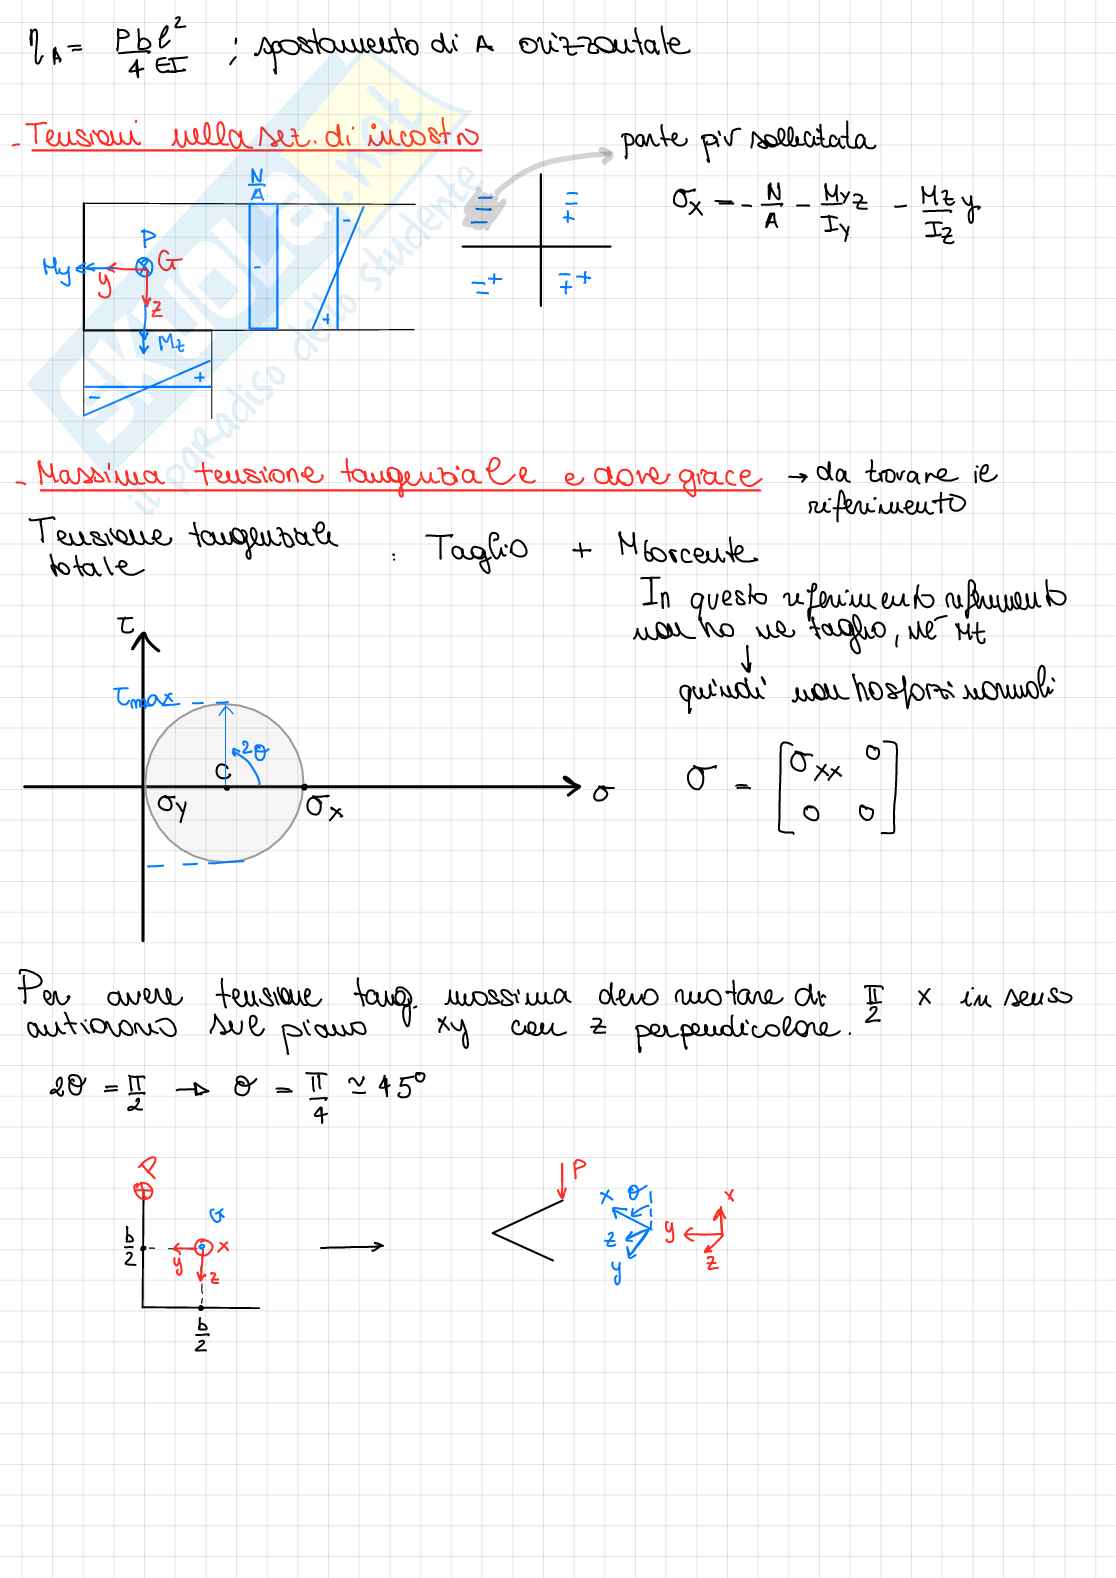 η_A = Pbl²/4EI ; spostamento di A orizzontale
- Tensioni nella sez. di incastro
parte più sollecitata
N/A
σx = - N/A - My z/Iy - Mz/Iz y
P
G
My
y
z
Mz
- + - +
= - = + = + = +
- Massima tensione tangenziale e dove giace → da trovare il
riferimento
Tensione tangenziale totale : Taglio + Mtorcente
In questo riferimento riferimento
non ho né taglio, né Mt
↓
quindi non ho sforzi normali
τ
τmax
2θ
C
σy
σx
σ
σ = [σxx 0
0 0]
Per avere tensione tang. massima devo ruotare di π/2 x in senso
antiorario sul piano xy con z perpendicolare.
2θ = π/2 → θ = π/4 ≃ 45°
P
G
b/2
y
x
z
b/2
→
P
x θ
z
y
x
y
z
SKUOLA.net
il paradiso dello studente